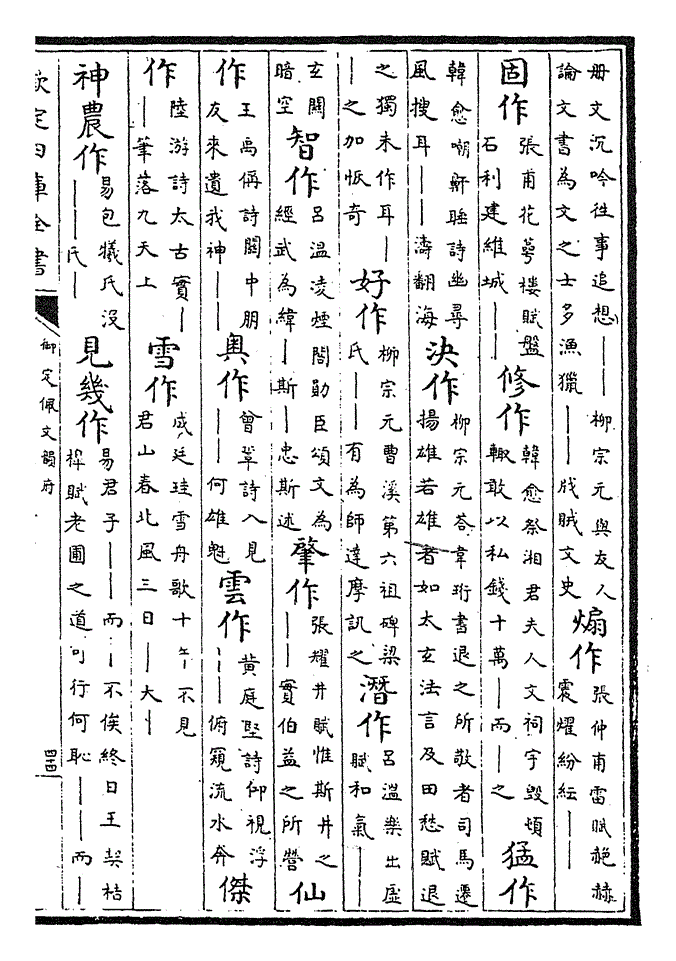 册文沉吟往事追想——柳宗元與友人論文書為文之士多漁獵——戕賊文史煽作張仲甫雷賦赩赫震耀紛紜——
固作張甫花萼樓賦盤石利建維城——修作韓愈祭湘君夫人文祠宇毀頓輙敢以私錢十萬—而—之猛作
韓愈嘲鼾睡詩幽尋風搜耳——濤翻海決作柳宗元荅韋珩書退之所敬者司馬遷揚雄若雄者如太玄法言及田愁賦退
之獨未作耳——之加恢奇好作柳宗元曹溪第六祖碑梁氏——有為師達摩訊之潛作呂溫樂出虛賦和氣——
玄闕暗空智作呂温凌煙閣勛臣頌文為經武為緯—斯—忠斯述肇作張耀井賦惟斯井之——實伯益之所營仙
作王禹偁詩關中朋友來遺我神——奥作曾鞏詩入見——何雄魁雲作黄庭堅詩仰視浮——俯窺流水奔傑
作陸游詩太古實——筆落九天上雪作成廷珪雪舟歌十午不見君山春北風三日—大—
神農作易包犧氏沒———氏—見幾作易君子——而—不俟終日王契桔槔賦老圃之道可行何恥———而—
欽定四庫全書
御定佩文韻府
四十四